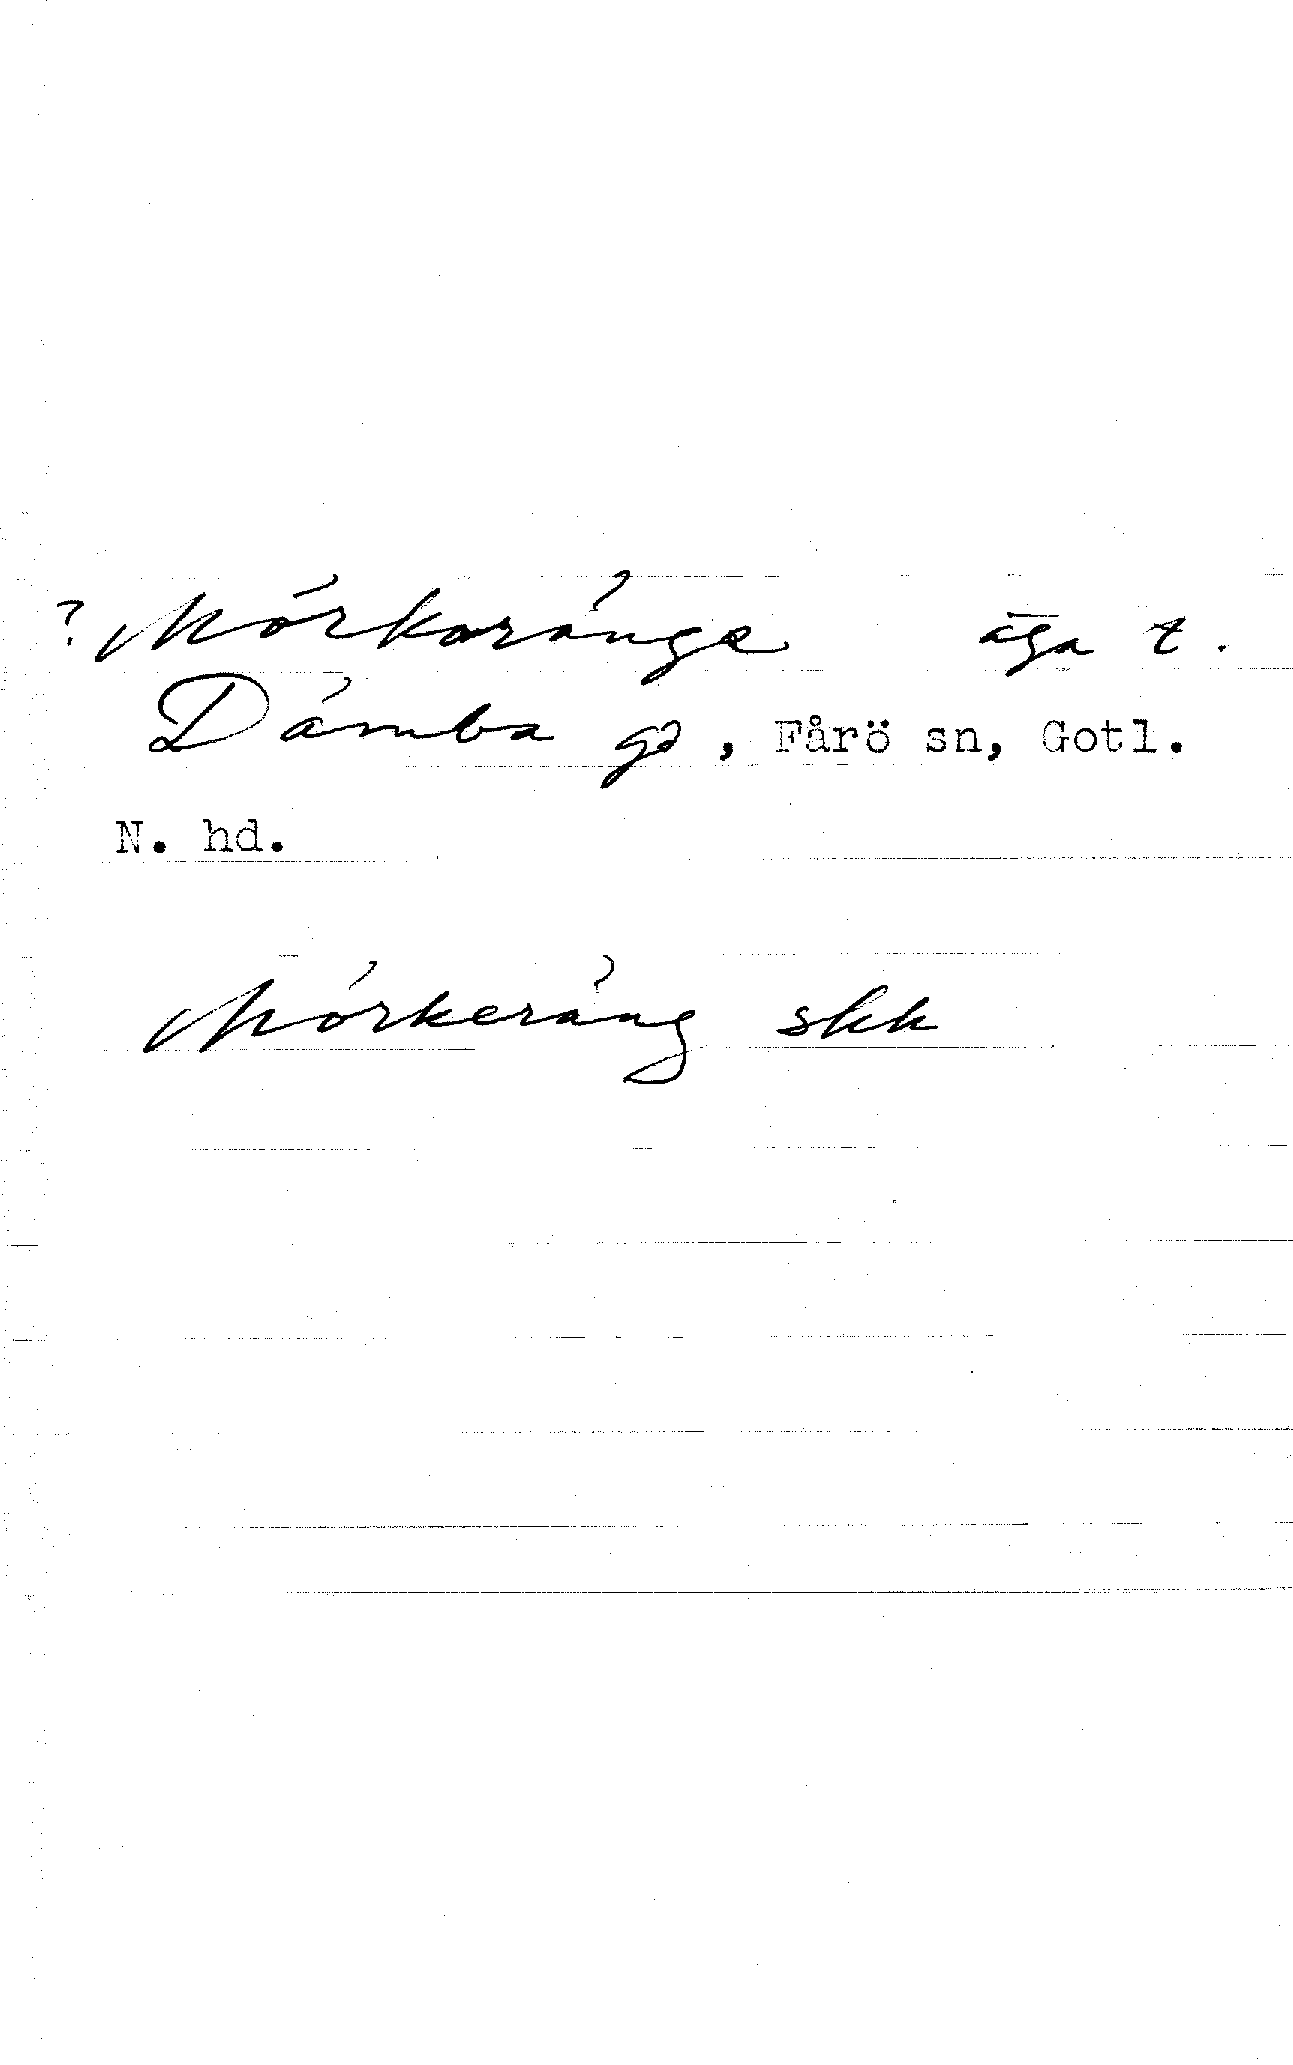 ? Mörkaränge äga t.
Dämba gd, Fårö sn, Gotl.
N. hd.
Mörkeräng skk